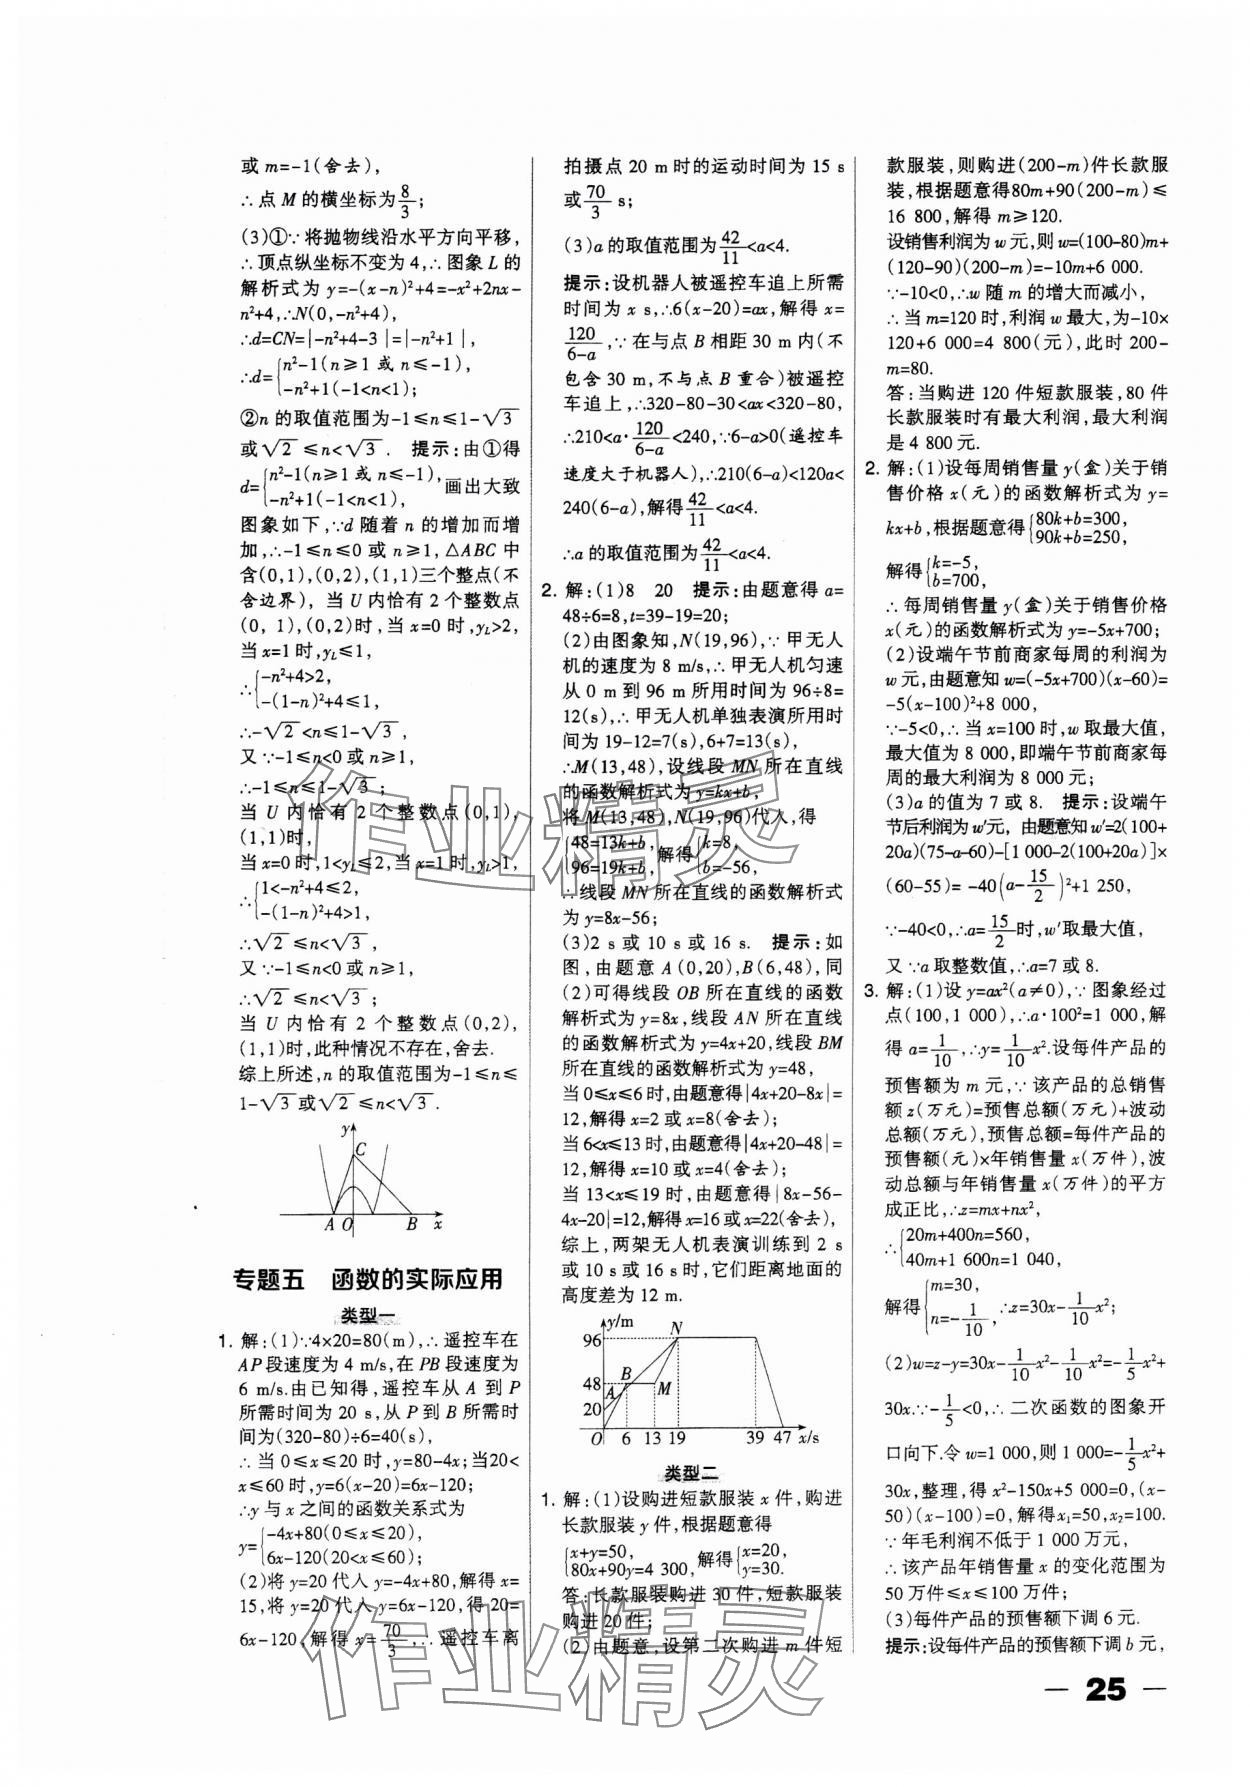 或 m=-1(舍去),
∴点 M 的横坐标为8/3;
(3)①∵将抛物线沿水平方向平移,
∴顶点纵坐标不变为 4,∴图象 L 的
解析式为 y=-(x-n)²+4=-x²+2nx-
n²+4,∴N(0,-n²+4),
∴d=CN=|-n²+4-3|=|-n²+1|,
∴d={n²-1(n≥1 或 n≤-1),
-n²+1(-1<n<1);
②n 的取值范围为-1≤n≤1-√3
或√2≤n<√3. 提示:由①得
d={n²-1(n≥1 或 n≤-1),
-n²+1(-1<n<1),画出大致
图象如下,∵d 随着 n 的增加而增
加,∴-1≤n≤0 或 n≥1,△ABC 中
含(0,1),(0,2),(1,1)三个整点(不
含边界),当 U 内恰有 2 个整数点
(0,1),(0,2)时,当 x=0 时,y_L>2,
当 x=1 时,y_L≤1,
∴{-n²+4>2,
-(1-n)²+4≤1,
∴-√2<n≤1-√3,
又∵-1≤n<0 或 n≥1,
∴-1≤n≤1-√3;
当 U 内恰有 2 个整数点(0,1),
(1,1)时,
当 x=0 时,1<y_L≤2,当 x=1 时,y_L>1,
∴{1<-n²+4≤2,
-(1-n)²+4>1,
∴√2≤n<√3,
又∵-1≤n<0 或 n≥1,
∴√2≤n<√3;
当 U 内恰有 2 个整数点(0,2),
(1,1)时,此种情况不存在,舍去.
综上所述,n 的取值范围为-1≤n≤
1-√3或√2≤n<√3.
y
C
A O B x
专题五 函数的实际应用
类型一
1. 解:(1)∵4×20=80(m),∴遥控车在
AP 段速度为 4 m/s,在 PB 段速度为
6 m/s.由已知得,遥控车从 A 到 P
所需时间为 20 s,从 P 到 B 所需时
间为(320-80)÷6=40(s),
∴当 0≤x≤20 时,y=80-4x;当20<
x≤60 时,y=6(x-20)=6x-120,
∴y 与 x 之间的函数关系式为
y={-4x+80(0≤x≤20),
6x-120(20<x≤60);
(2)将 y=20 代入 y=-4x+80,解得 x=
15,将 y=20 代入 y=6x-120,得 20=
6x-120,解得 x=70/3,∴遥控车离
拍摄点 20 m 时的运动时间为 15 s
或70/3 s;
(3)a 的取值范围为42/11<a<4.
提示:设机器人被遥控车追上所需
时间为 x s,∴6(x-20)=ax,解得 x=
120/(6-a),∵在与点 B 相距 30 m 内(不
包含 30 m,不与点 B 重合)被遥控
车追上,∴320-80-30<ax<320-80,
∴210<a·120/(6-a)<240,∵6-a>0(遥控车
速度大于机器人),∴210(6-a)<120a<
240(6-a),解得42/11<a<4.
∴a 的取值范围为42/11<a<4.
2. 解:(1)8 20 提示:由题意得 a=
48÷6=8,t=39-19=20;
(2)由图象知,N(19,96),∵甲无人
机的速度为 8 m/s,∴甲无人机匀速
从 0 m 到 96 m 所用时间为 96÷8=
12(s),∴甲无人机单独表演所用时
间为 19-12=7(s),6+7=13(s),
∴M(13,48),设线段 MN 所在直线
的函数解析式为 y=kx+b,
将 M(13,48),N(19,96)代入,得
{48=13k+b,
96=19k+b,解得{k=8,
b=-56,
∴线段 MN 所在直线的函数解析式
为 y=8x-56;
(3)2 s 或 10 s 或 16 s. 提示:如
图,由题意 A(0,20),B(6,48),同
(2)可得线段 OB 所在直线的函数
解析式为 y=8x,线段 AN 所在直线
的函数解析式为 y=4x+20,线段 BM
所在直线的函数解析式为 y=48,
当 0≤x≤6 时,由题意得|4x+20-8x|=
12,解得 x=2 或 x=8(舍去);
当 6<x≤13 时,由题意得|4x+20-48|=
12,解得 x=10 或 x=4(舍去);
当 13<x≤19 时,由题意得|8x-56-
4x-20|=12,解得 x=16 或 x=22(舍去),
综上,两架无人机表演训练到 2 s
或 10 s 或 16 s 时,它们距离地面的
高度差为 12 m.
y/m
96 N
48 B M
A
20
O 6 13 19 39 47 x/s
类型二
1. 解:(1)设购进短款服装 x 件,购进
长款服装 y 件,根据题意得
{x+y=50,
80x+90y=4 300,解得{x=20,
y=30.
答:长款服装购进 30 件,短款服装
购进 20 件;
(2)由题意,设第二次购进 m 件短
款服装,则购进(200-m)件长款服
装,根据题意得80m+90(200-m)≤
16 800,解得 m≥120.
设销售利润为 w 元,则 w=(100-80)m+
(120-90)(200-m)=-10m+6 000.
∵-10<0,∴w 随 m 的增大而减小,
∴当 m=120 时,利润 w 最大,为-10×
120+6 000=4 800(元),此时 200-
m=80.
答:当购进 120 件短款服装,80 件
长款服装时有最大利润,最大利润
是 4 800 元.
2. 解:(1)设每周销售量 y(盒)关于销
售价格 x(元)的函数解析式为 y=
kx+b,根据题意得{80k+b=300,
90k+b=250,
解得{k=-5,
b=700,
∴每周销售量 y(盒)关于销售价格
x(元)的函数解析式为 y=-5x+700;
(2)设端午节前商家每周的利润为
w 元,由题意知 w=(-5x+700)(x-60)=
-5(x-100)²+8 000,
∵-5<0,∴当 x=100 时,w 取最大值,
最大值为 8 000,即端午节前商家每
周的最大利润为 8 000 元;
(3)a 的值为 7 或 8. 提示:设端午
节后利润为 w′元,由题意知 w′=2(100+
20a)(75-a-60)-[1 000-2(100+20a)]×
(60-55)=-40(a-15/2)²+1 250,
∵-40<0,∴a=15/2时,w′取最大值,
又∵a 取整数值,∴a=7 或 8.
3. 解:(1)设 y=ax²(a≠0),∵图象经过
点(100,1 000),∴a·100²=1 000,解
得 a=1/10,∴y=1/10x².设每件产品的
预售额为 m 元,∵该产品的总销售
额 z(万元)=预售总额(万元)+波动
总额(万元),预售总额=每件产品的
预售额(元)×年销售量 x(万件),波
动总额与年销售量 x(万件)的平方
成正比,∴z=mx+nx²,
∴{20m+400n=560,
40m+1 600n=1 040,
解得{m=30,
n=-1/10,∴z=30x-1/10x²;
(2)w=z-y=30x-1/10x²-1/10x²=-1/5x²+
30x.∵-1/5<0,∴二次函数的图象开
口向下.令 w=1 000,则 1 000=-1/5x²+
30x,整理,得 x²-150x+5 000=0,(x-
50)(x-100)=0,解得x₁=50,x₂=100.
∵年毛利润不低于 1 000 万元,
∴该产品年销售量 x 的变化范围为
50 万件≤x≤100 万件;
(3)每件产品的预售额下调 6 元.
提示:设每件产品的预售额下调 b 元,
— 25 —
作业精灵
作业精灵